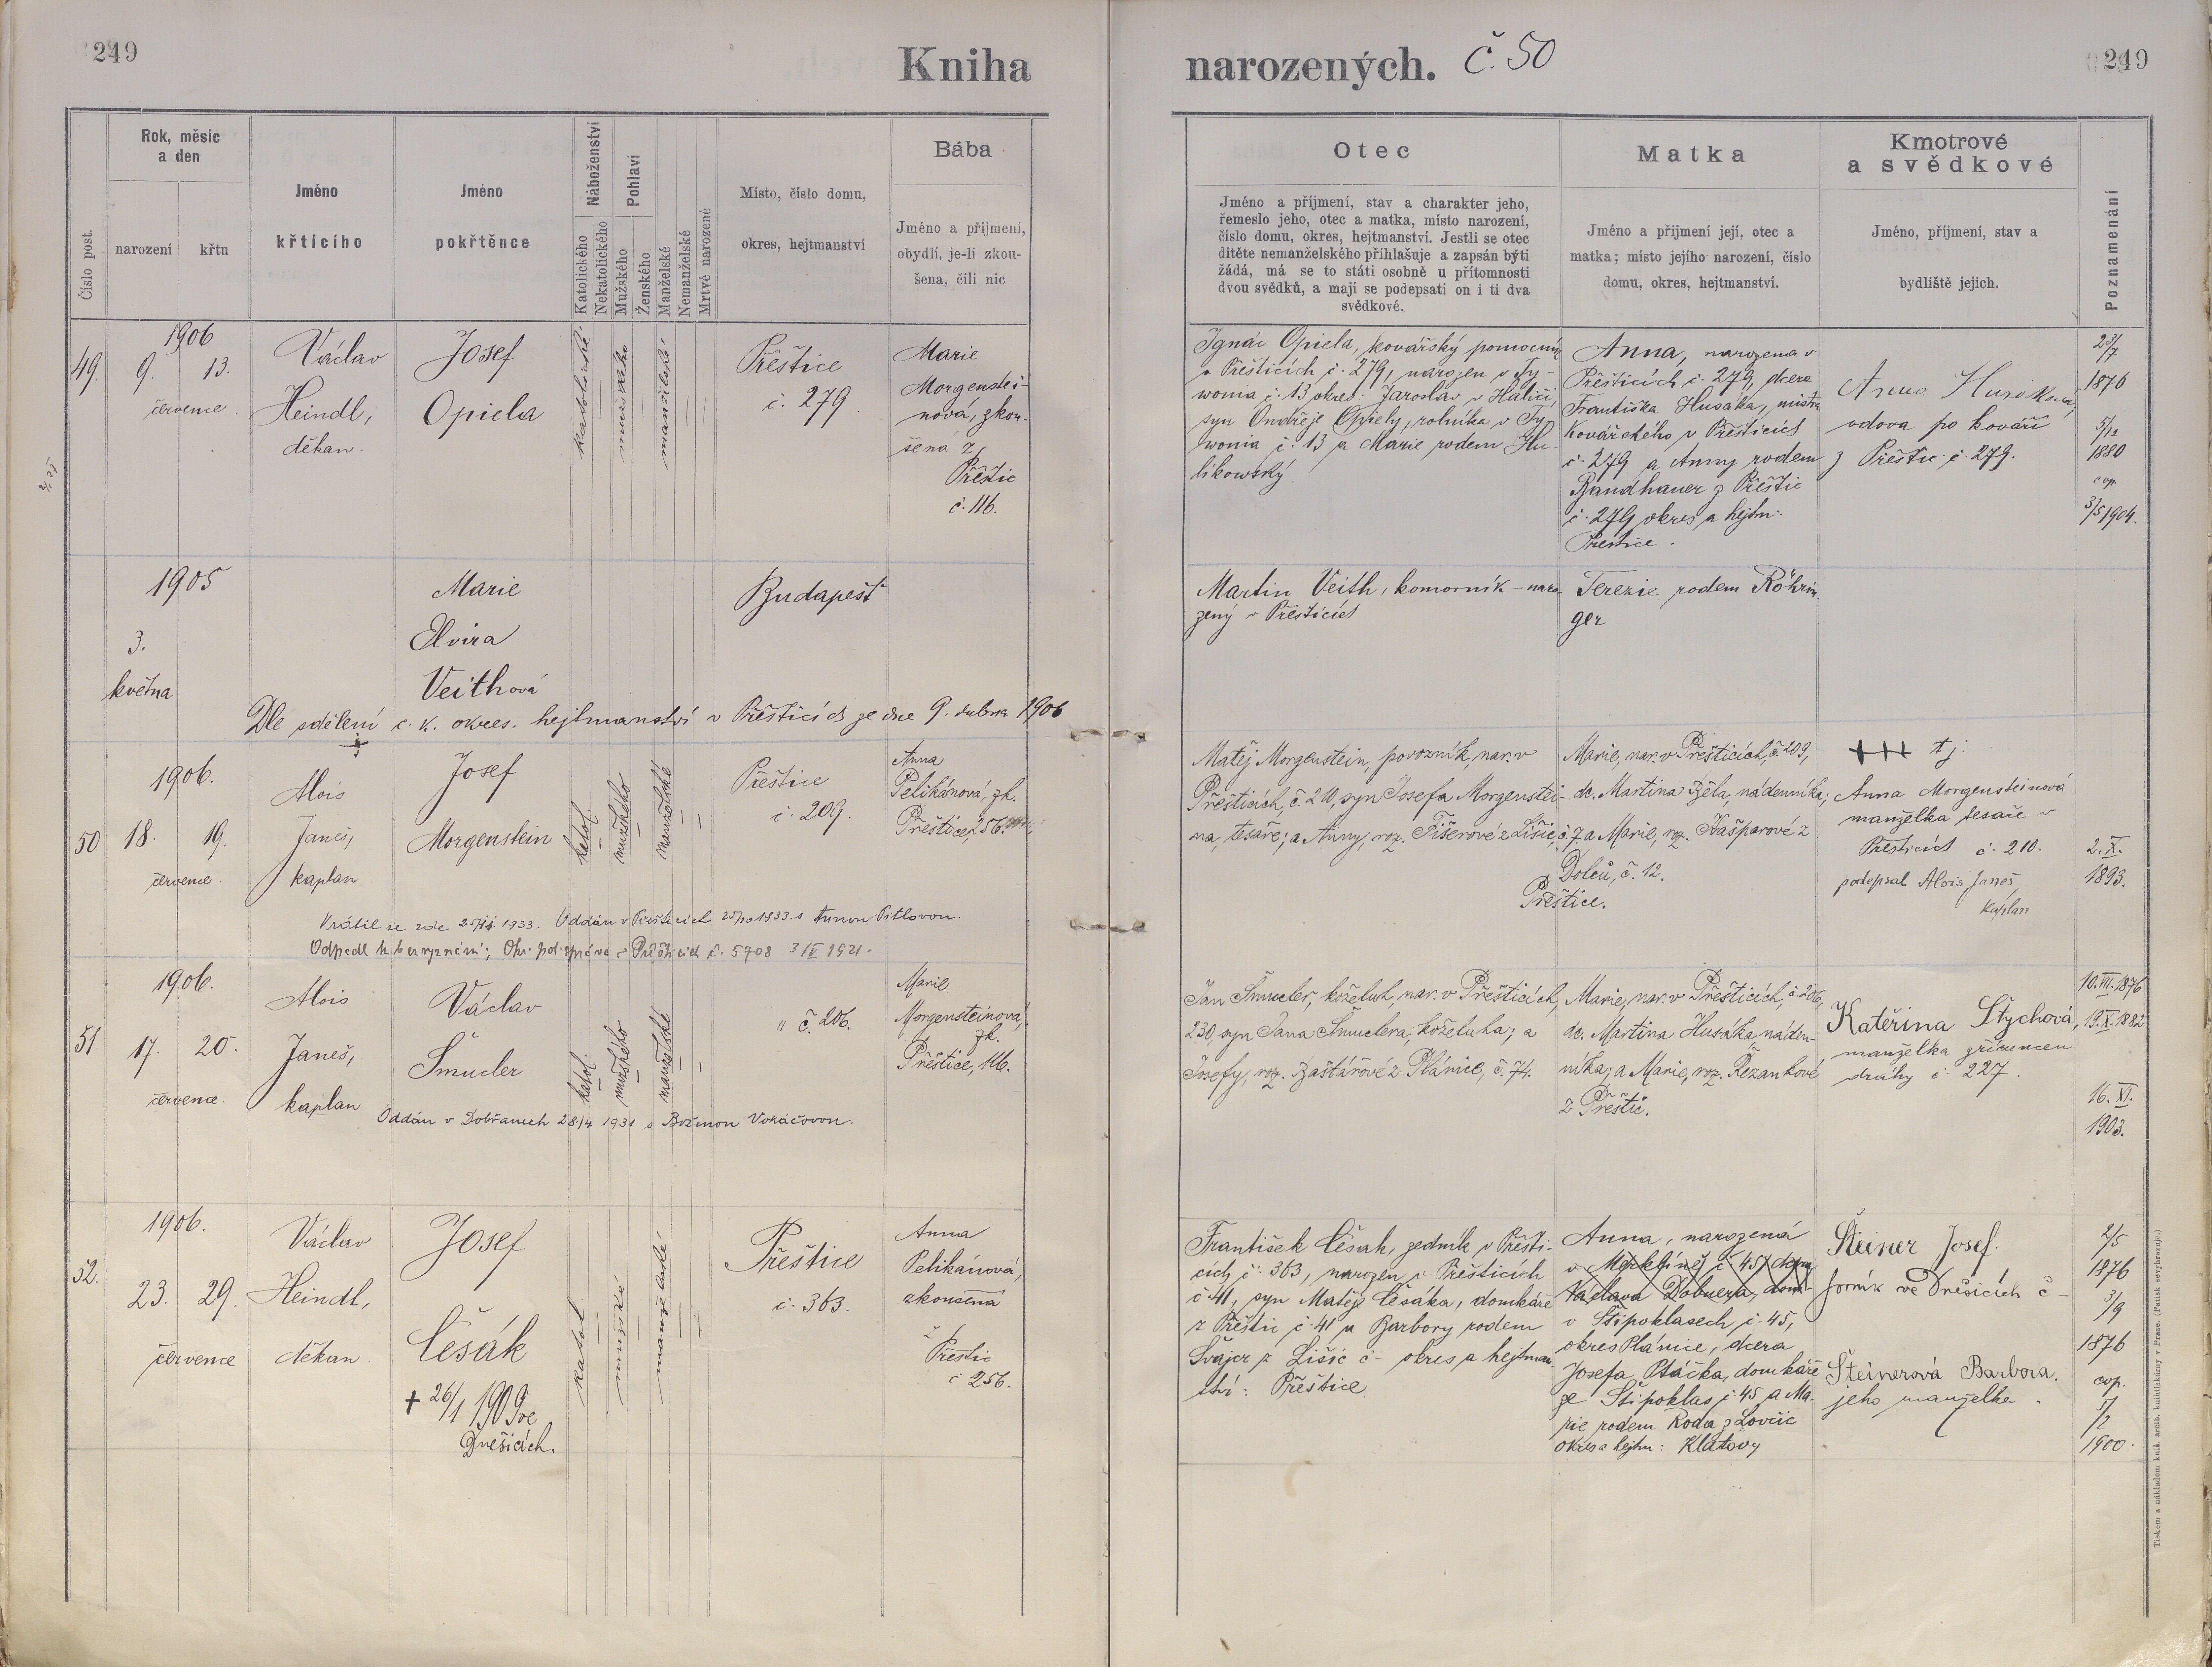 249
Kniha
narozených. č. 50
249
Číslo post.
Rok, měsíc
a den
narození
křtu
Jméno
křticího
Jméno
pokřtěnce
Náboženství
Katolického
Nekatolického
Pohlaví
Mužského
Ženského
Manželské
Nemanželské
Mrtvé narozené
Místo, číslo domu,
okres, hejtmanství
Bába
Jméno a přijmení,
obydlí, je-li zkou-
šena, čili nic
Otec
Jméno a příjmení, stav a charakter jeho,
řemeslo jeho, otec a matka, místo narození,
číslo domu, okres, hejtmanství. Jestli se otec
dítěte nemanželského přihlašuje a zapsán býti
žádá, má se to státi osobně u přítomnosti
dvou svědků, a mají se podepsati on i ti dva
svědkové.
Matka
Jméno a přijmení její, otec a
matka; místo jejího narození, číslo
domu, okres, hejtmanství.
Kmotrové
a svědkové
Jméno, příjmení, stav a
bydliště jejich.
Poznamenání
49.
1906
9. 13.
července
Václav
Heindl,
děkan.
Josef
Opiela
katolické
mužského
manželské
Přeštice
č. 279
Marie
Morgenstei-
nová, zkou-
šená z
Přeštic
č. 116.
Ignác Opiela, kovářský pomocník
v Přešticích č. 279, narozen v Ty-
wonia č. 13 okres: Jaroslav v Haliči,
syn Ondřeje Opiely, rolníka v Ty-
wonia č. 13 a Marie rodem Hu-
likowský.
Anna, narozena v
Přešticích č. 279, dcera
Františka Husáka, mistra
kovářského v Přešticích
č. 279 a Anny rodem
Bandhauer z Přeštic
č. 279 okres a hejtm:
Přeštice.
Anna Husáková,
vdova po kováři
z Přeštic č. 279.
23/7
1876
5/12
1880
cop.
3/5 1904.
1905
3.
května
Marie
Elvira
Veithová
Budapešť
Martin Veith, komorník – naro-
zený v Přešticích
Terezie rodem Röhrin
ger
Dle sdělení c. k. okres. hejtmanství v Přešticích ze dne 9. dubna 1906
50
1906.
18. 19.
července
Alois
Janeš,
kaplan
Josef
Morgenstein
katol.
mužského
manželské
Přeštice
č. 209.
Anna
Pelikánová, zk.
Přeštice, 256.
Matěj Morgenstein, povozník, nar. v
Přešticích, č. 210, syn Josefa Morgenstei-
na, tesaře; a Anny, roz. Fišerové z Lišic, č. 7.
Přeštice.
Marie, nar. v Přešticích, č. 209,
dc. Martina Běla, nádenníka;
a Marie, roz. Kašparové z
Dolců, č. 12.
+++ tj.
Anna Morgensteinová
manželka tesaře v
Přešticích č. 210.
podepsal Alois Janeš,
kaplan
2. X.
1893.
Vrátil se zde 1933. Oddán v Přešticích 25/10 1933 s Annou Pitlovou.
Odpadl k bezvyznání; Okr. pol. správa v Přešticích č. 5708 3/V 1921.
51.
1906.
17. 20.
července
Alois
Janeš,
kaplan
Václav
Šmucler
katol.
mužského
manželské
" č. 206.
Marie
Morgensteinová,
zk.
Přeštice, 116.
Jan Šmucler, koželuh, nar. v Přešticích,
230, syn Jana Šmuclera, koželuha; a
Josefy, roz. Baštářové z Plánice, č. 74.
Marie, nar. v Přešticích, č. 206,
dc. Martina Husáka, náden-
níka; a Marie, roz. Řezankové
z Přeštic.
Kateřina Štychová,
manželka zřízence
dráhy č. 227.
10. III. 1876
19. X. 1882
16. XI.
1903.
Oddán v Dobřanech 28/4 1931 s Boženou Vokáčovou.
52.
1906.
23. 29.
července
Václav
Heindl,
děkan.
Josef
Češák
+ 26/1 1909 ve
Dnešicích.
katol.
mužské
manželské
Přeštice
č. 363.
Anna
Pelikánová,
zkoušená
z Přeštic
č 256.
František Češák, zedník v Přešti-
cích č. 363, narozen v Přešticích
č. 41, syn Matěje Češáka, domkáře
z Přeštic č. 41 a Barbory rodem
Švajcr z Lišic č – okres a hejtman-
ství: Přeštice.
Anna, narozená
v Merklíně č. 457 dcera
Václava Dobnera, dom-
v Štipoklasech č. 45,
okres Plánice, dcera
Josefa Ptáčka, domkáře
ze Štipoklas č. 45 a Ma-
rie rodem Roda z Lovčic
okres a hejtm: Klatovy
Šteiner Josef.
forník ve Dnešicích č –
Šteinerová Barbora.
jeho manželka.
2/5
1876
3/9
1876
cop.
5/2
1900.
Tiskem a nákladem kníž. arcib. knihtiskárny v Praze. (Patisk se vyhrazuje.)